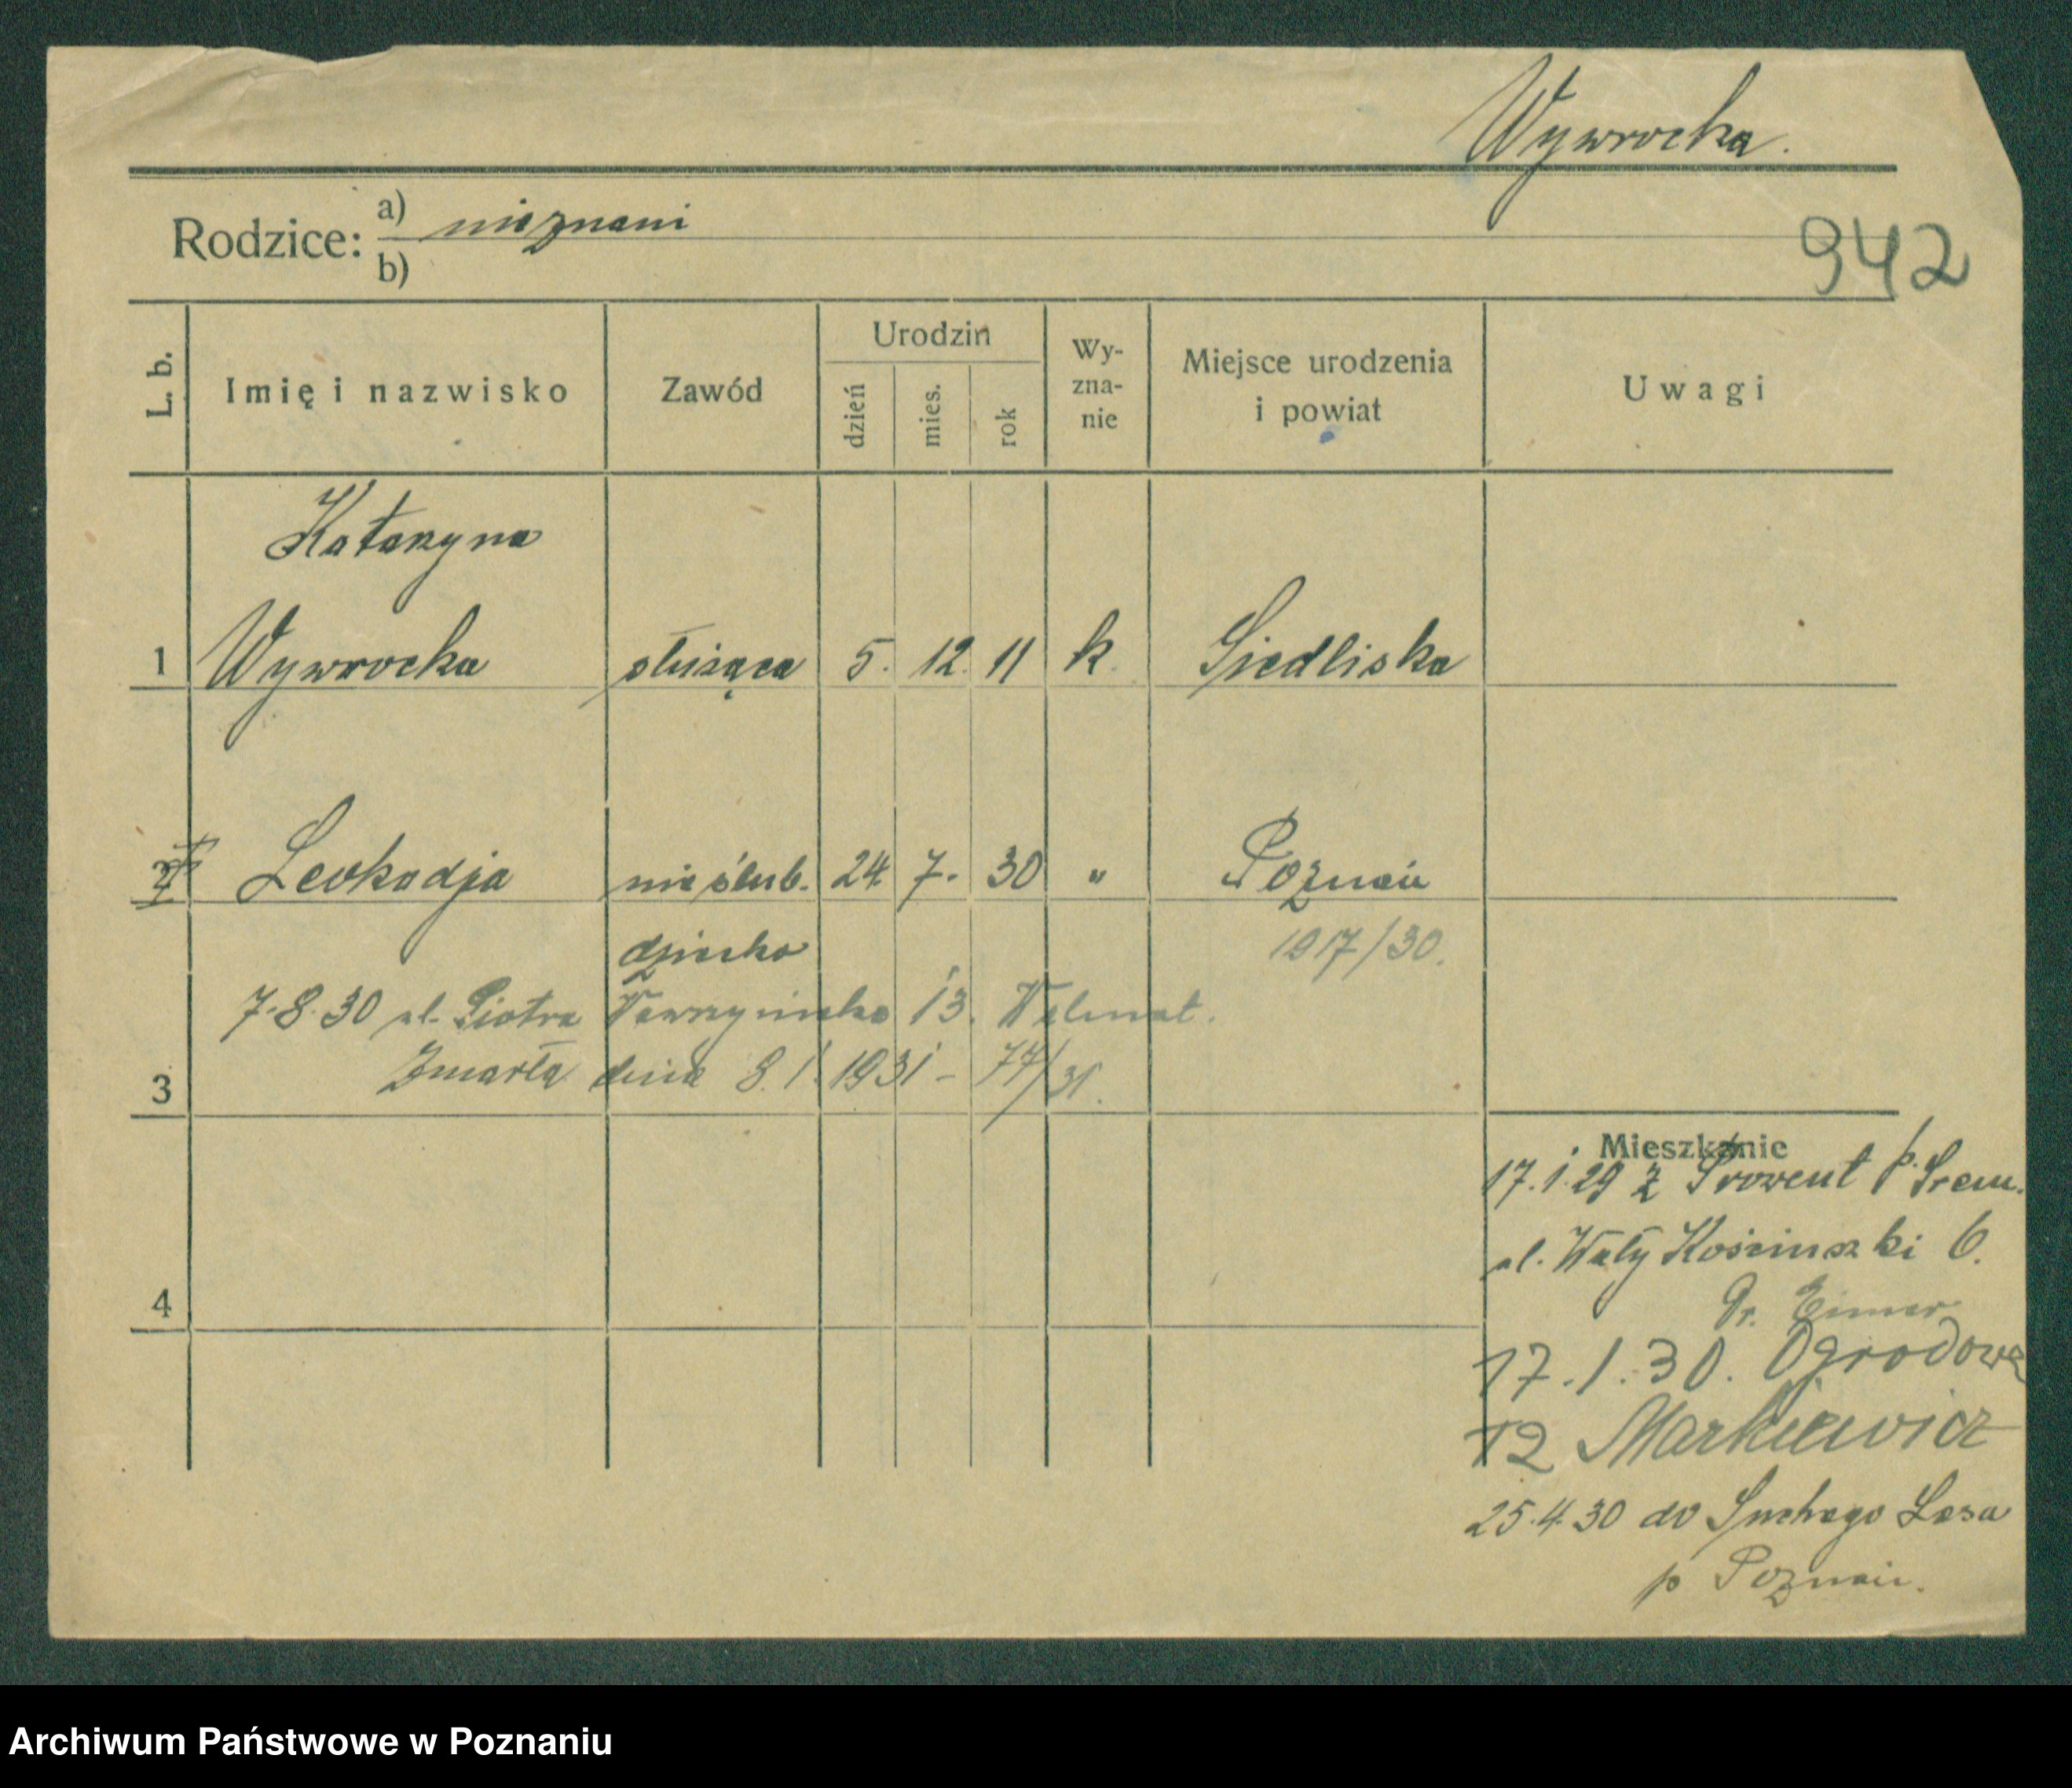 Wywrocka.
Rodzice:
a) nieznani
b)
942
L. b.
Imię i nazwisko
Zawód
Urodzin
dzień
mies.
rok
Wy-
zna-
nie
Miejsce urodzenia
i powiat
Uwagi
Katarzyna
1 Wywrocka służąca 5. 12. 11 k. Siedliska
2 Leokadja nieślub. 24 7. 30 " Poznań
dziecko 1917/30.
7.8.30 ul. Piotra Wawrzyniaka 13.
Zmarła dnia 8.1.1931 - 77/31.
3
Mieszkanie
17.1.29 z Prowent p. Śrem.
ul. Wały Kościuszki 6.
Dr.
17.1.30. Ogrodowa
12 Markiewicz
4
25.4.30 do Suchego Lasu
p Poznań.
Archiwum Państwowe w Poznaniu